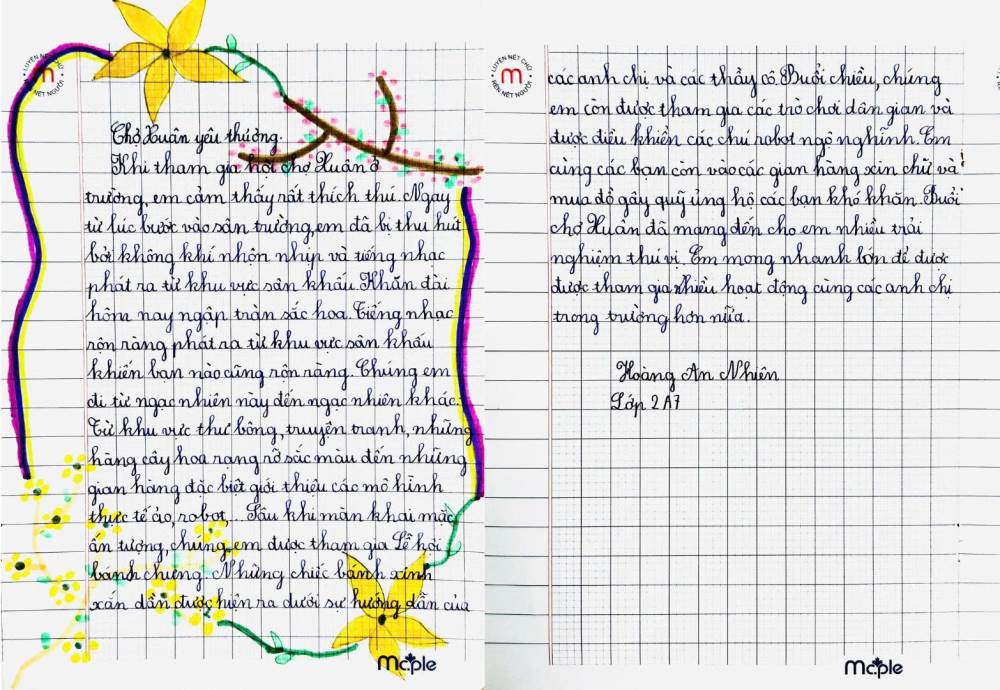 LUYỆN NÉT CHỮ
m
RÈN NẾT NGƯỜI
Chợ Xuân yêu thương.
Khi tham gia hội chợ Xuân ở
trường, em cảm thấy rất thích thú. Ngay
từ lúc bước vào sân trường, em đã bị thu hút
bởi không khí nhộn nhịp và tiếng nhạc
phát ra từ khu vực sân khấu. Khán đài
hôm nay ngập tràn sắc hoa. Tiếng nhạc
rộn ràng phát ra từ khu vực sân khấu
khiến bạn nào cũng rộn ràng. Chúng em
đi từ ngạc nhiên này đến ngạc nhiên khác.
Từ khu vực thư bông, truyện tranh, những
hàng cây hoa rạng rỡ sắc màu đến những
gian hàng đặc biệt giới thiệu các mô hình
thực tế ảo, robot,... Sâu khi màn khai mạc
ấn tượng, chúng em được tham gia Lễ hội
bánh chưng. Những chiếc bánh xinh
xắn dần được hiện ra dưới sự hướng dẫn của
Maple
LUYỆN NÉT CHỮ
m
RÈN NẾT NGƯỜI
các anh chị và các thầy cô. Buổi chiều, chúng
em còn được tham gia các trò chơi dân gian và
được điều khiển các chú robot ngộ nghĩnh. Em
cùng các bạn còn vào các gian hàng xin chữ và
mua đồ gây quỹ ủng hộ các bạn khó khăn. Buổi
chợ Xuân đã mang đến cho em nhiều trải
nghiệm thú vị. Em mong nhanh lớn để được
được tham gia nhiều hoạt động cùng các anh chị
trong trường hơn nữa.
Hoàng An Nhiên
Lớp 2A7
Maple